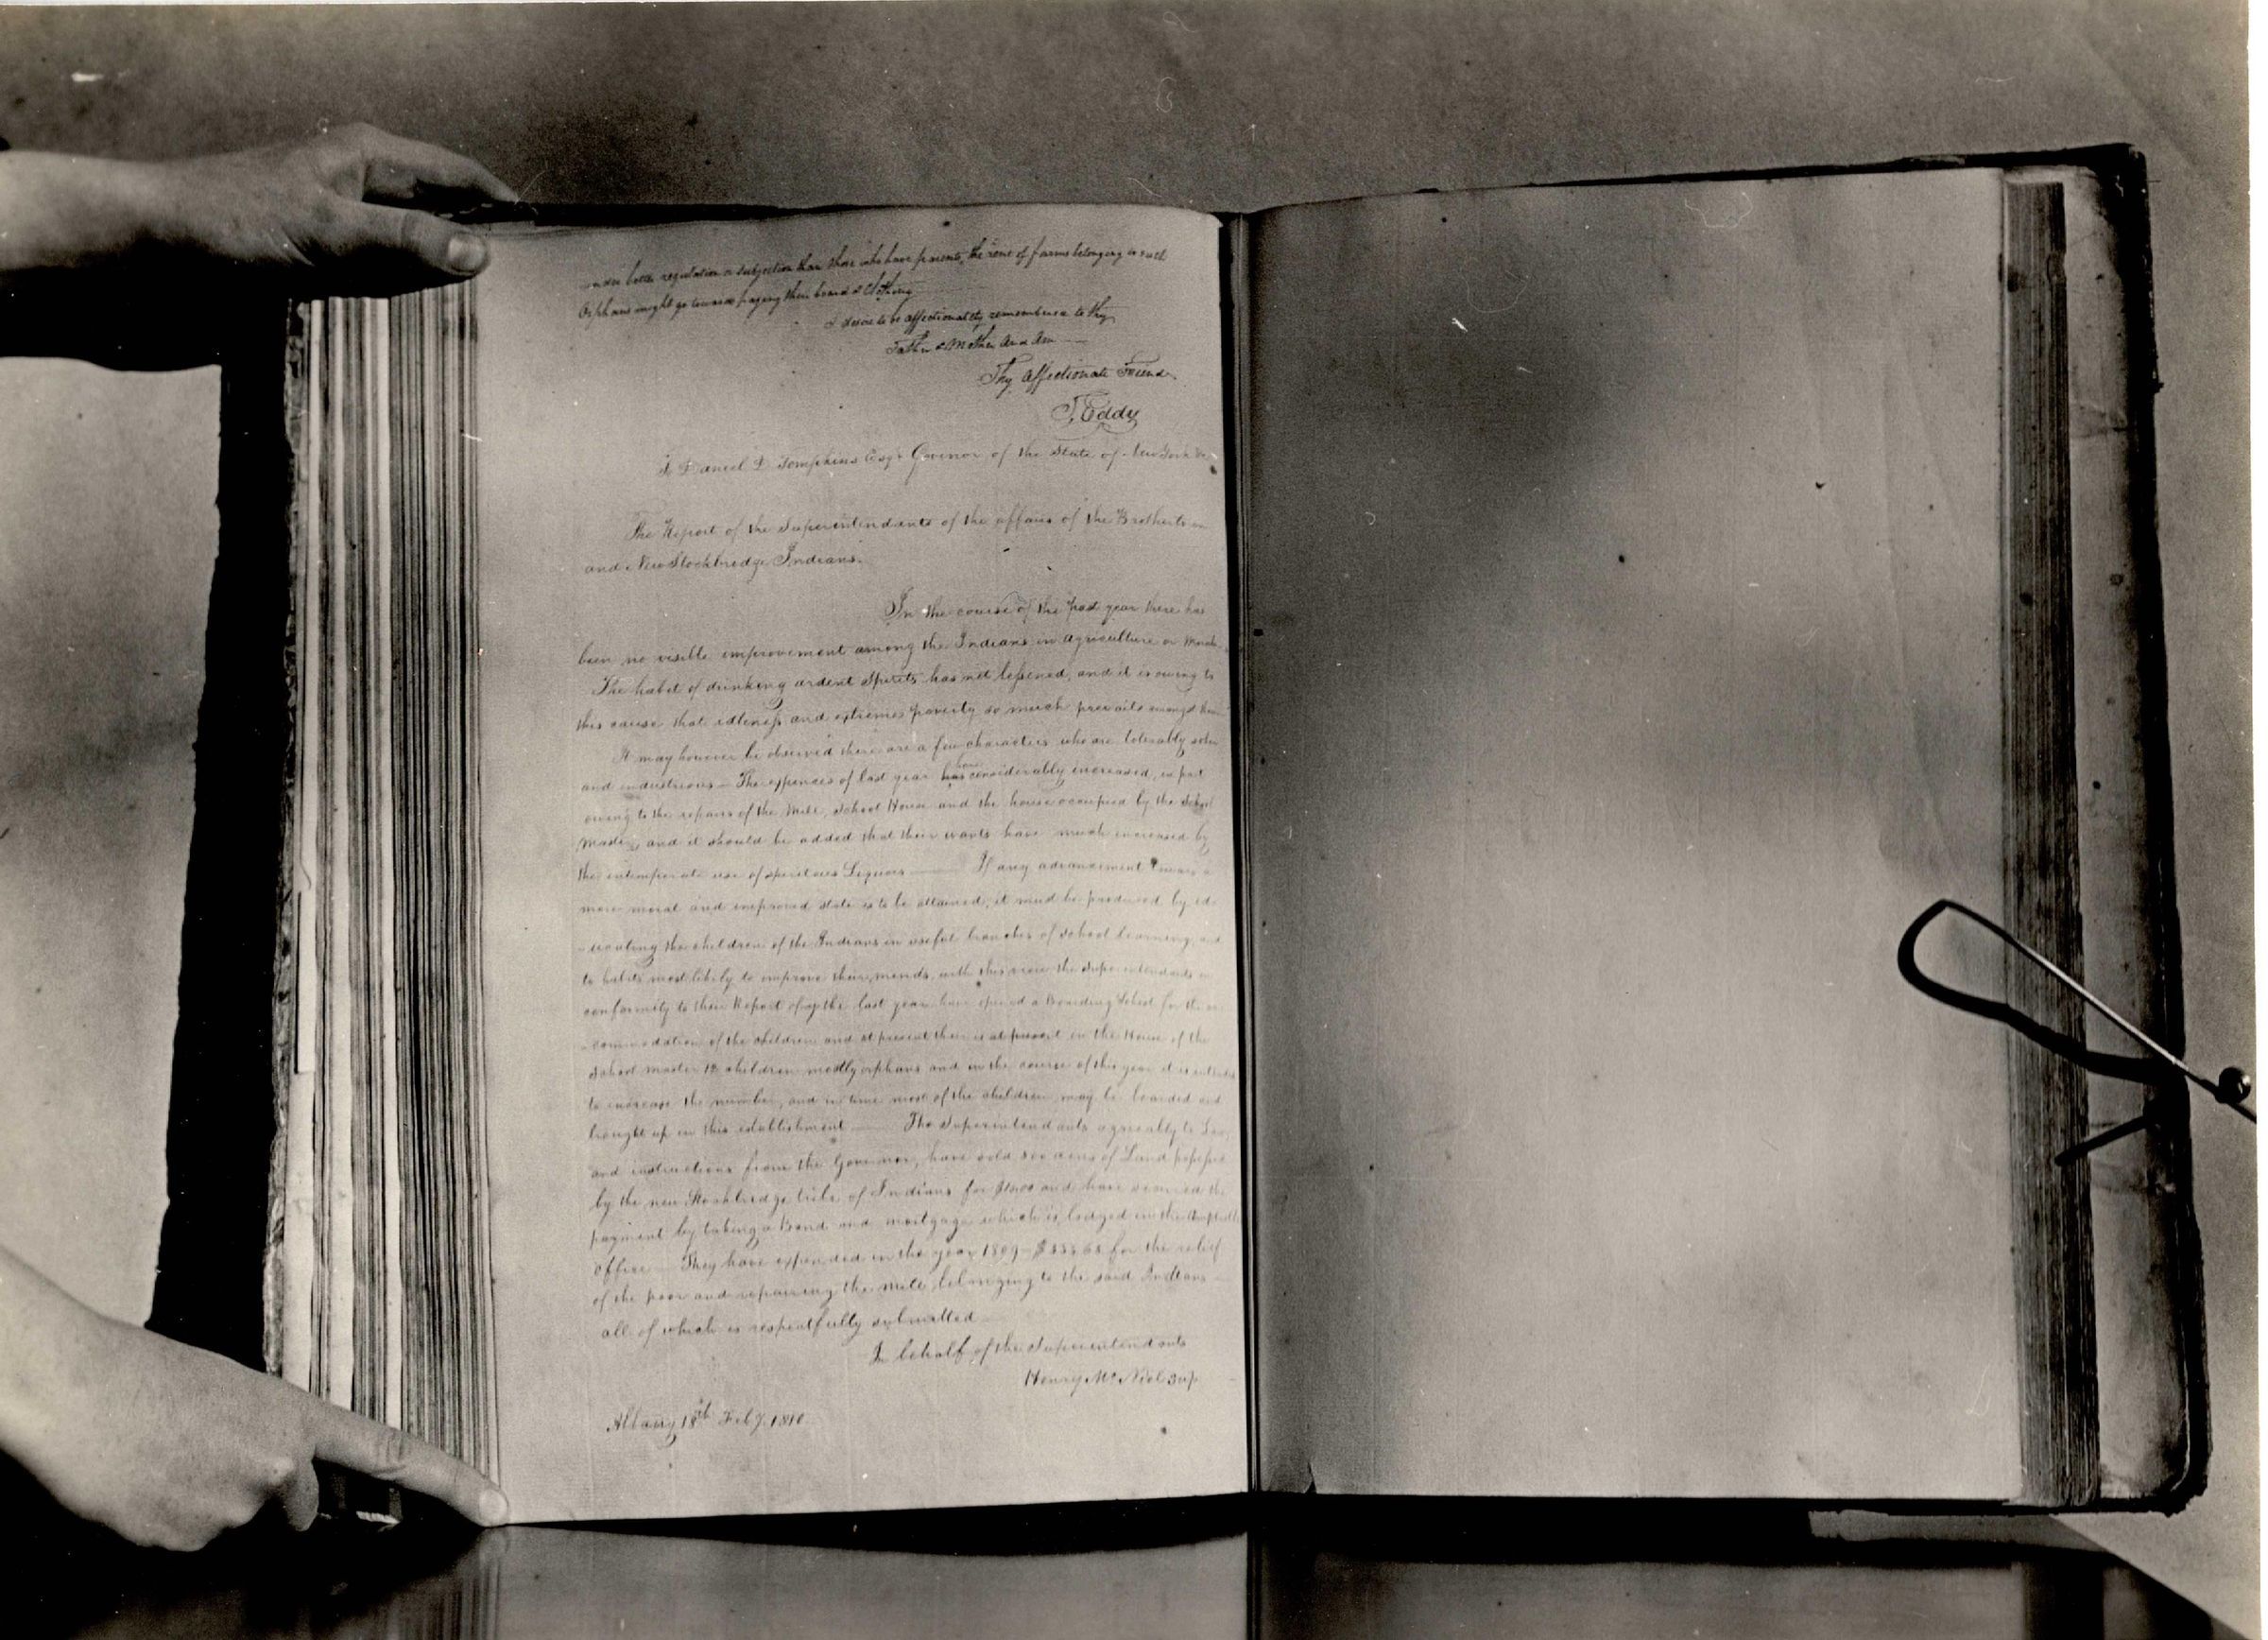 under better regulation & subjection than those who have parents, the rent of farms belonging to such
Orphans might go towards paying their board & Clothing
I desire to be affectionately remembered to thy
Father & Mother and Ann
Thy affectionate Friend
T. Eddy
To Daniel D Tompkins Esqr Govenor of the State of New York &c
The Report of the Superintendants of the affairs of the Brothertown
and New Stockbridge Indians.
In the course of the past year there has
been no visible improvement among the Indians in agriculture or Morals
The habit of drinking ardent Spirits has not lessened, and it is owing to
this cause that idleness and extreme poverty so much prevails amongst them
It may however be observed there are a few characters who are tolerably sober
and industrious — The expences of last year has have considerably increased, in part
owing to the repairs of the Mill, School House and the house occupied by the School
Master, and it should be added that their wants have much increased by
the intemperate use of spiritous Liquors —— If any advancement towards a
more moral and improved state is to be attained, it must be produced by ed-
-ucating the children of the Indians in useful branches of School learning, and
to habits most likely to improve their minds, with this view the Superintendants in
conformity to their Report of the last year have opened a Boarding School for the ac-
-commodation of the children and at present their is at present in the House of the
School master 12 children mostly orphans and in the course of this year it is intended
to increase the number, and in time most of the children may be boarded and
brought up in this establishment —— The Superintendants agreeably to Law
and instructions from the Governor, have sold 500 acres of Land possessed
by the new Stockbridge tribe of Indians for and have secured the
payment by taking a Bond and mortgage which is lodged in the Comptrollers
office — They have expended in the year 1809 — for the relief
of the poor and repairing the mill belonging to the said Indians —
all of which is respectfully submitted
In behalf of the Superintendants
Henry Mc Niel Sup
Albany 18th Feby. 1810